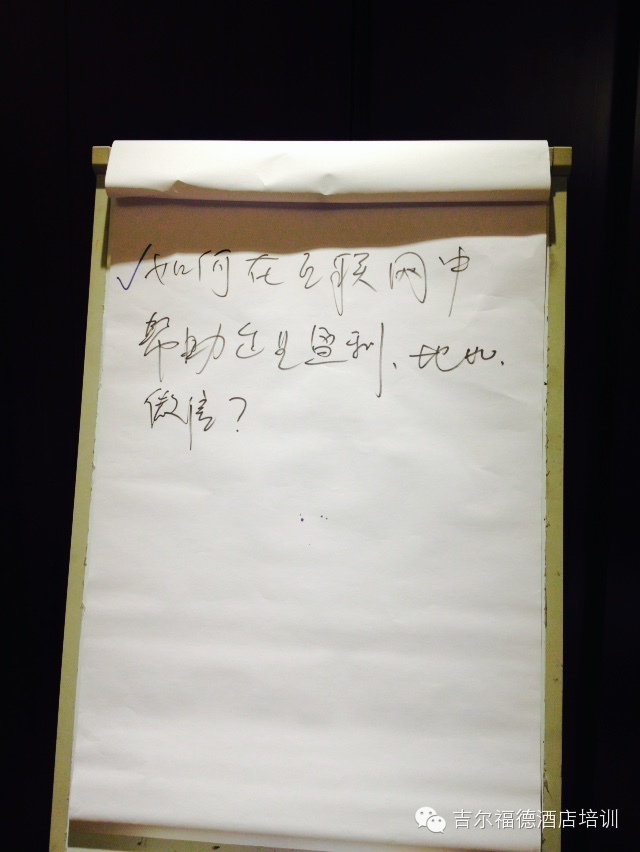 ✓如何在互联网中
帮助企业盈利、比如.
微信?
吉尔福德酒店培训